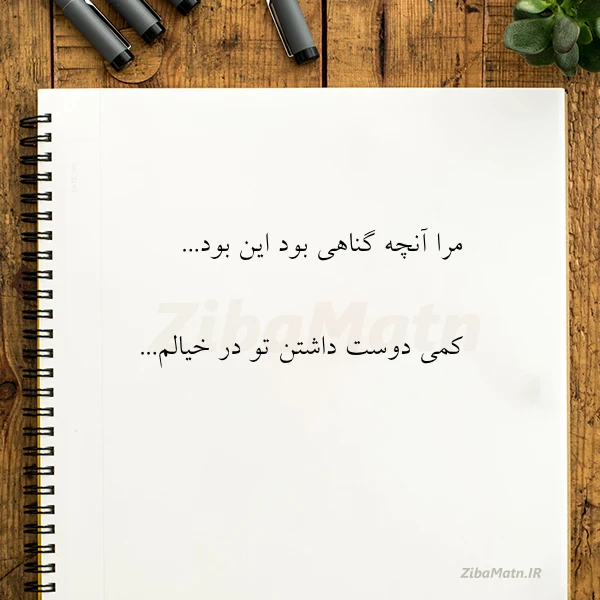 مرا آنچه گناهی بود این بود...
ZibaMatn
کمی دوست داشتن تو در خیالم...
ZibaMatn.IR